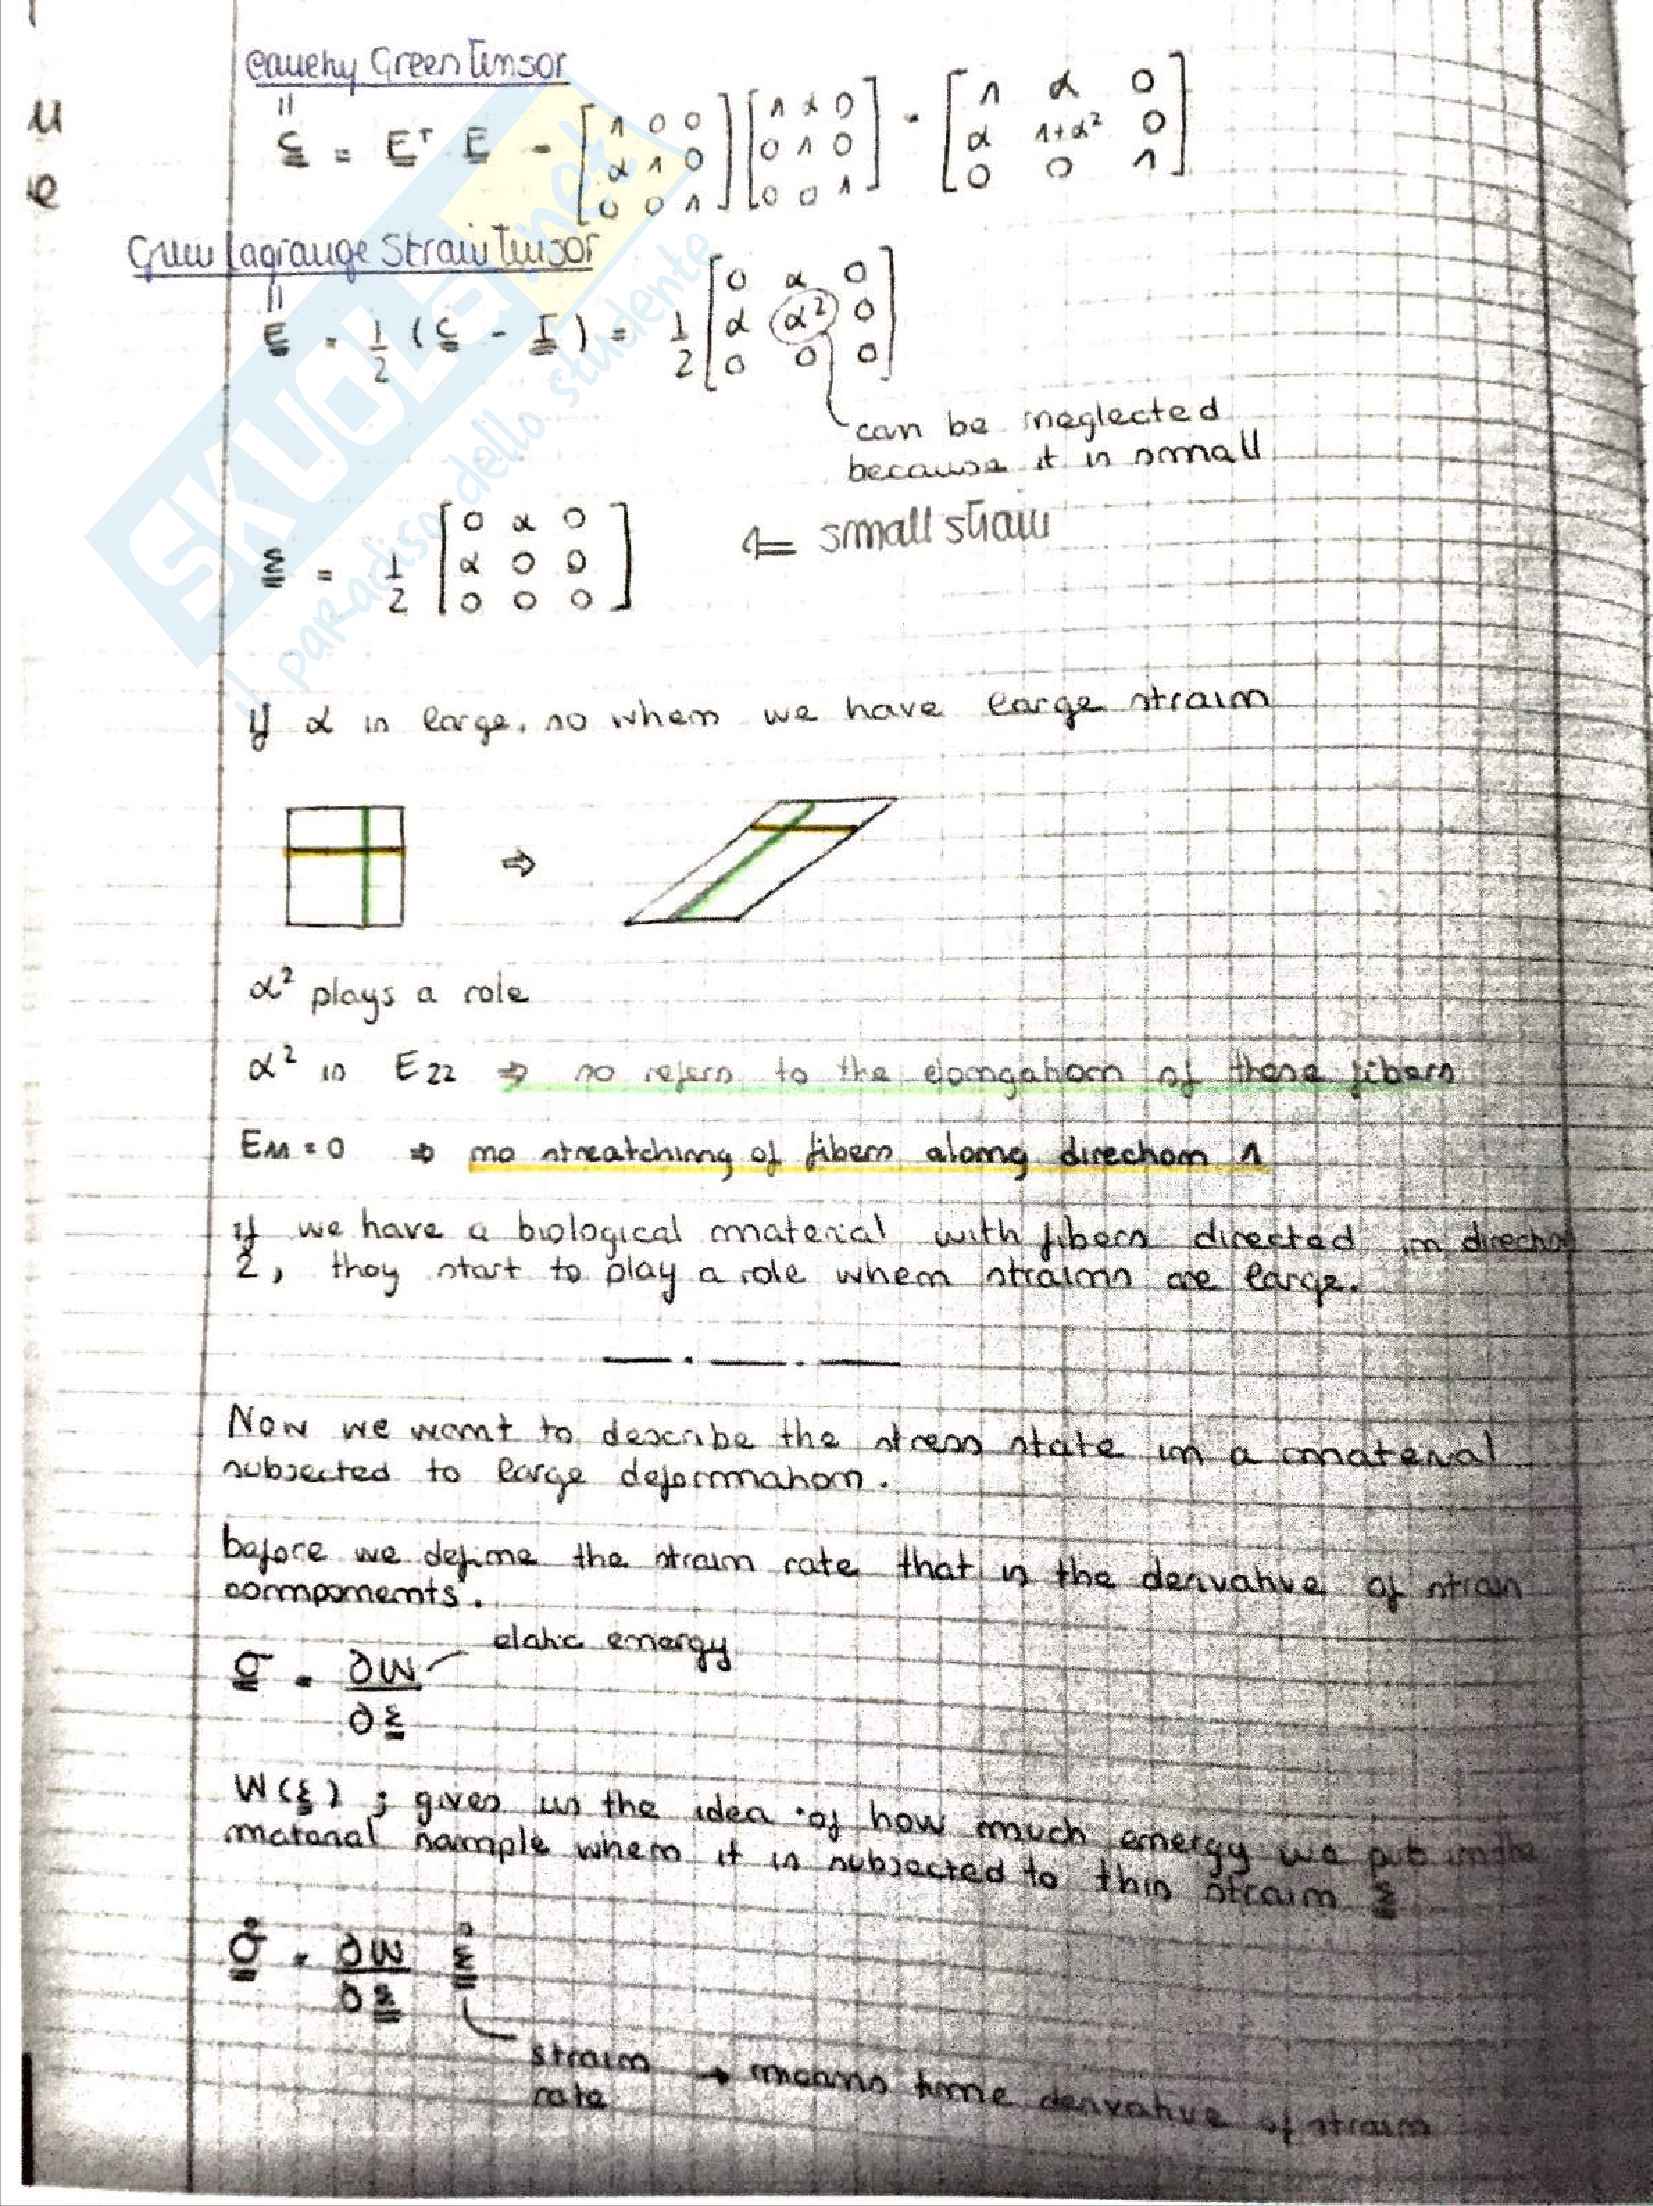 u
e
Cauchy Green Tensor
C = F^T F = [1 0 0; α 1 0; 0 0 1] [1 α 0; 0 1 0; 0 0 1] = [1 α 0; α 1+α² 0; 0 0 1]
Green Lagrange Strain Tensor
E = 1/2 (C - I) = 1/2 [0 α 0; α α² 0; 0 0 0]
can be neglected
because it is small
ε = 1/2 [0 α 0; α 0 0; 0 0 0] ⇐ small strain
If α is large, so when we have large strain
⇒
α² plays a role
α² is E22 ⇒ so refers to the elongation of these fibers
E11 = 0 ⇒ no streatching of fibers along direction 1
if we have a biological material with fibers directed in direction
2, they start to play a role when strains are large.
Now we want to describe the stress state in a material
subjected to large deformation.
before we define the strain rate that is the derivative of strain
components.
σ = ∂W/∂ε elatic energy
W(ε) ; gives us the idea of how much energy we put in the
material sample when it is subjected to this strain ε
σ̇ = ∂W/∂ε ε̇
strain → means time derivative of strain
rate
SKUOLA.net
il paradiso dello studente